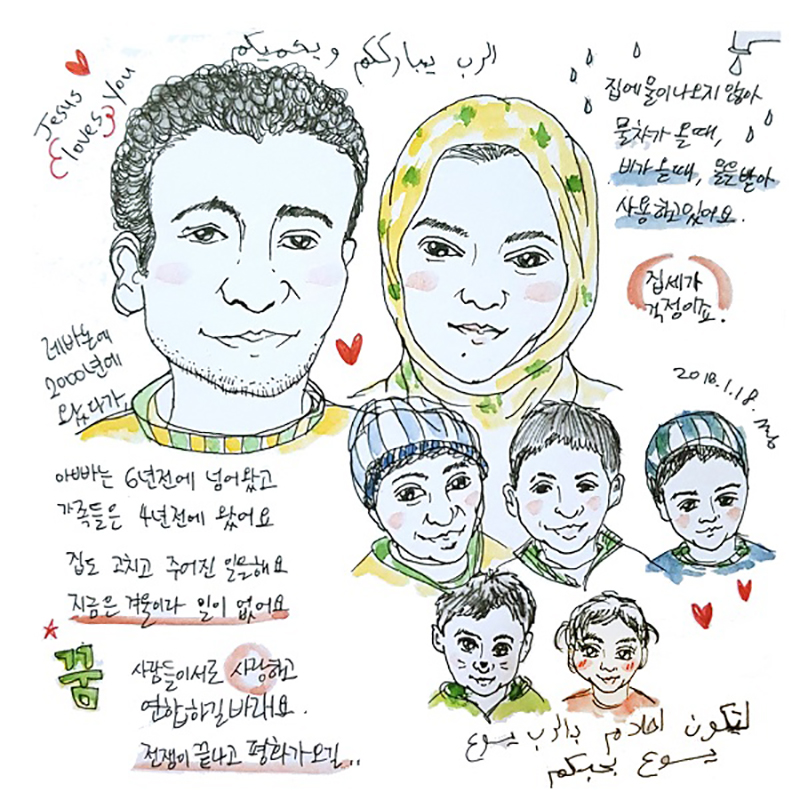 الرب يبارككم ويحميكم
Jesus
loves
You
집에 물이 나오지 않아
물차가 올 때,
비가 올 때, 물을 받아
사용하고 있어요.
집세가
걱정이죠.
레바논에
2000년에
왔다가,
2018.1.18.
아빠는 6년전에 넘어왔고
가족들은 4년전에 왔어요
집도 고치고 주어진 일을 해요
지금은 겨울이라 일이 없어요
꿈
사람들이 서로 사랑하고
연합하길 바래요.
전쟁이 끝나고 평화가 오길..
لتكون احلامكم بالرب يسوع
يسوع بحبكم